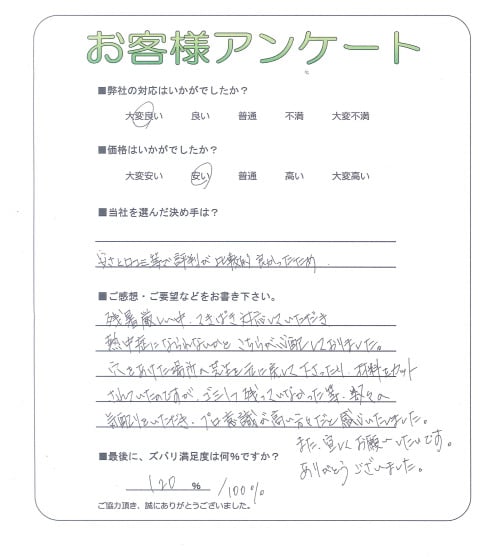 お客様アンケート
■弊社の対応はいかがでしたか？
大変良い 良い 普通 不満 大変不満
■価格はいかがでしたか？
大変安い 安い 普通 高い 大変高い
■当社を選んだ決め手は？
安さと口コミ等の評判が比較的良かったため.
■ご感想・ご要望などをお書き下さい。
残暑厳しい中、てきぱき対応していただき
熱中症にならないかとこちらが心配しておりました。
穴をあけた場所へ芝生を元に戻して下さったり、材料をカット
されていたのですが、ゴミ1つ残っていなかった等、数々の
気配りをいただき、プロ意識が高い方々だと感心いたしました。
また、宜しくお願いしたいです。
ありがとうございました。
■最後に、ズバリ満足度は何％ですか？
120 % /100%
ご協力頂き、誠にありがとうございました。